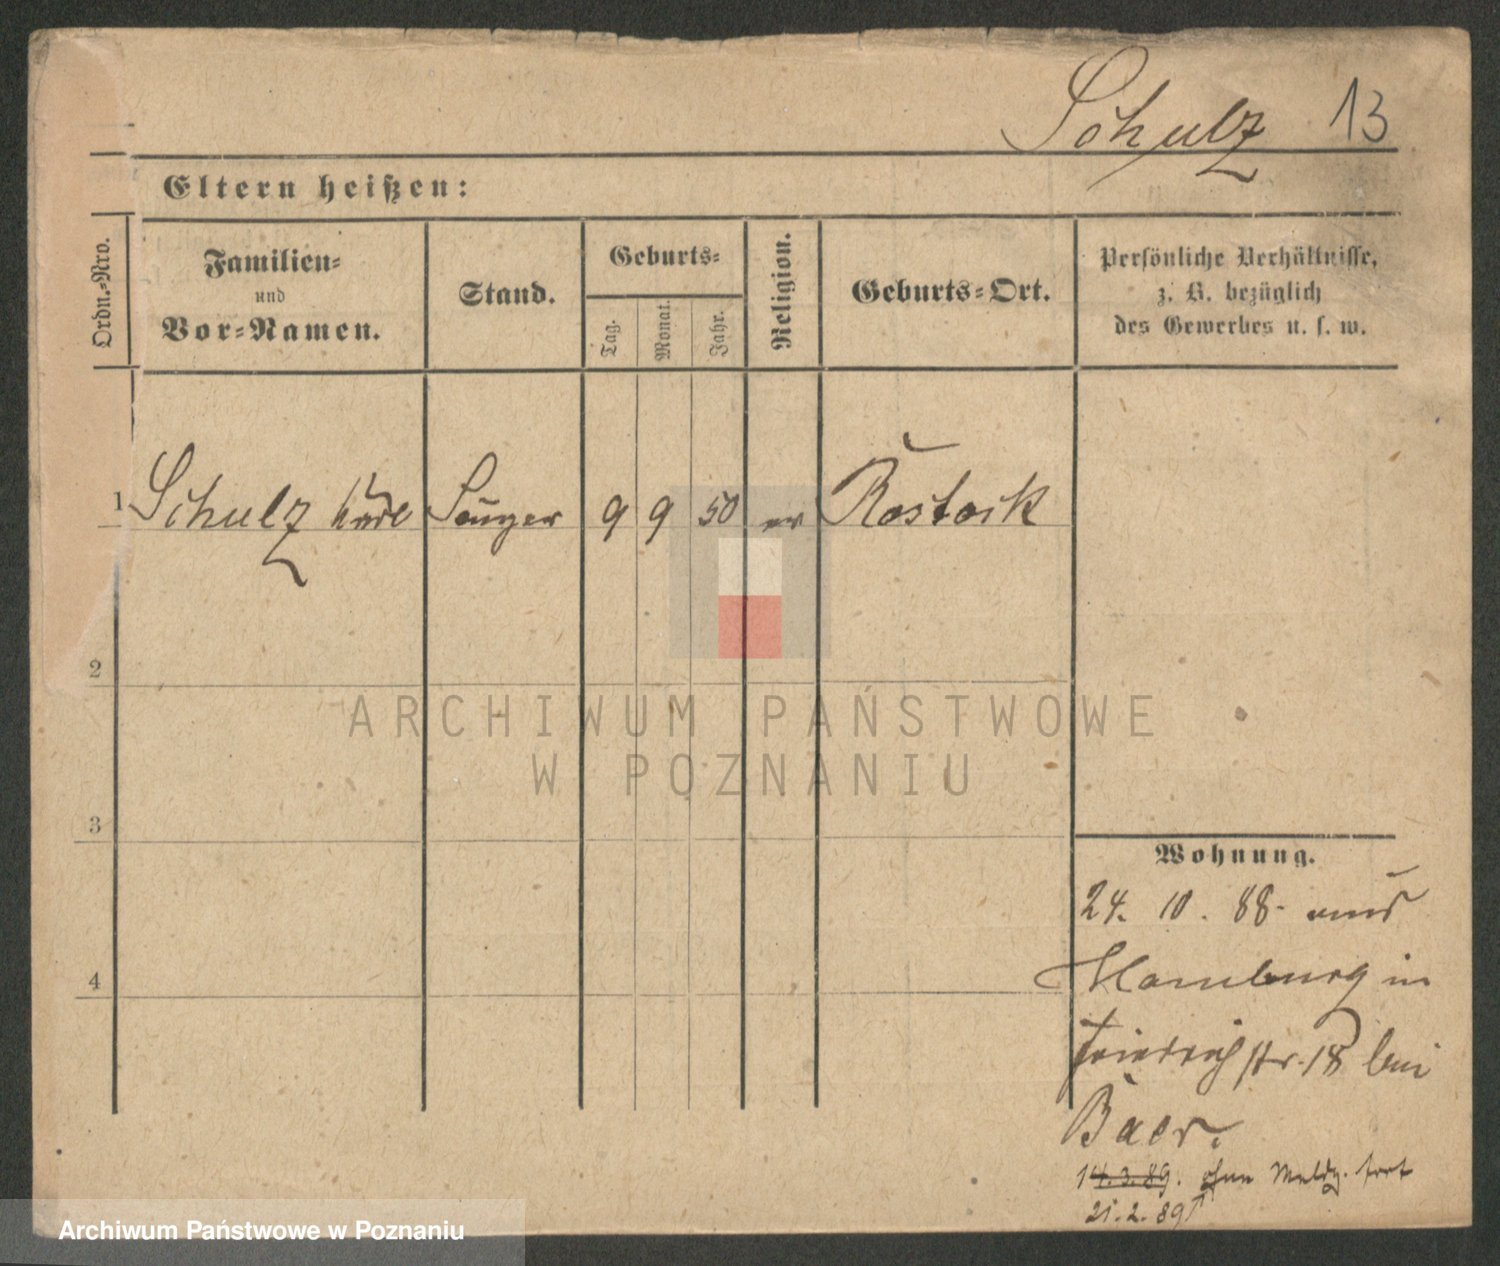 Schulz 13
Eltern heißen:
Ordn.-Nro.
Familien-
und
Vor-Namen.
Stand.
Geburts-
Tag.
Monat.
Jahr.
Religion.
Geburts-Ort.
Persönliche Verhältnisse,
z. B. bezüglich
des Gewerbes u. s. w.
1 Schulz Karl Sänger 9 9 50 ev Rostock
2
ARCHIWUM PAŃSTWOWE
W POZNANIU
3
Wohnung.
24. 10. 88. aus
4
Hamburg in
Friedrichstr. 18 bei
Baer.
14.3.89. ohne Meldg. fort
21.2.89
Archiwum Państwowe w Poznaniu